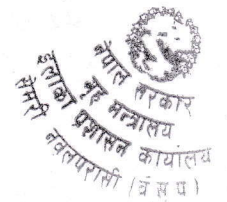 नेपाल सरकार
गृह मन्त्रालय
इलाका प्रशासन कार्यालय
सेमरी
नवलपरासी (ब स प)